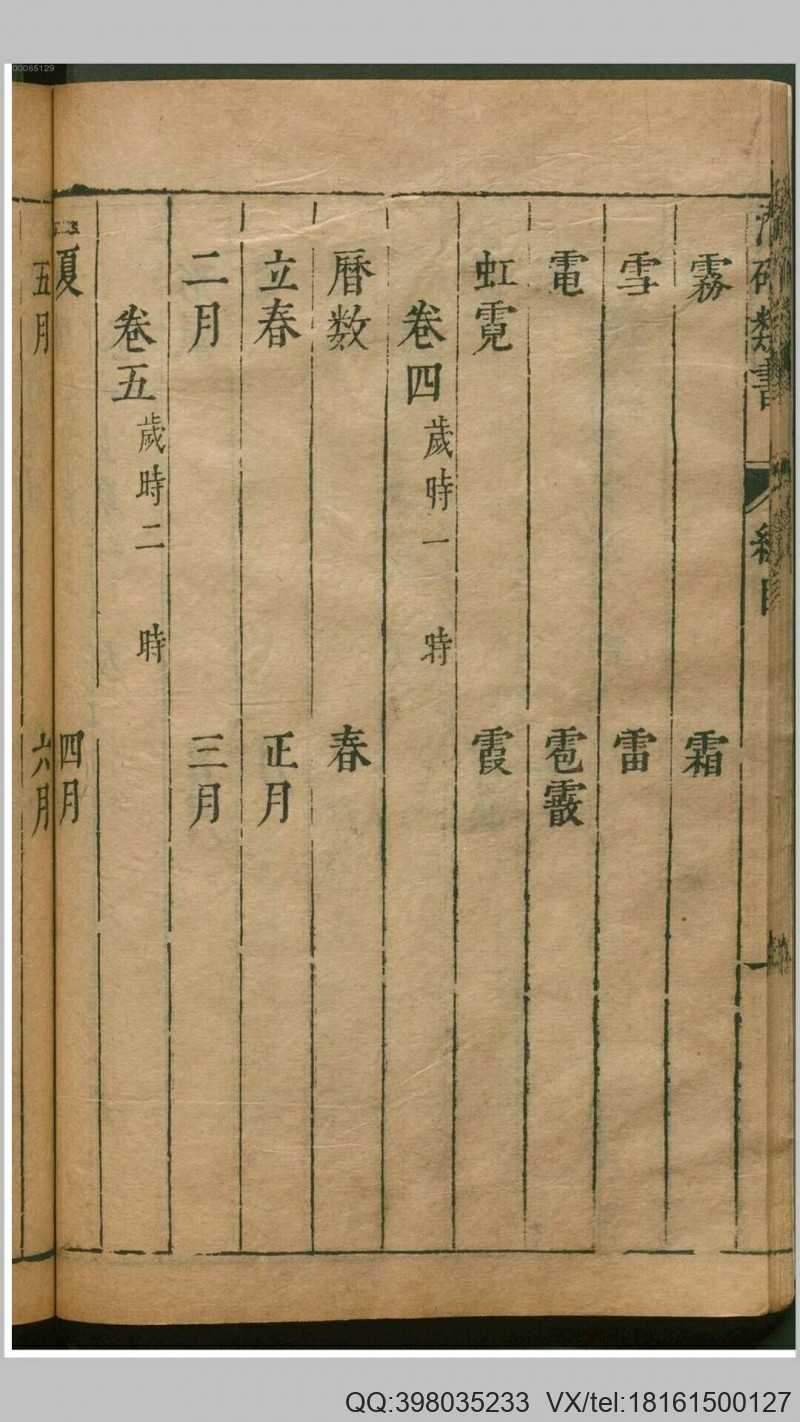 00065129
類書
總目
霧 霜
雪 雷
電 雹霰
虹霓 霞
卷四 歲時一 時
曆数 春
立春 正月
二月 三月
卷五 歲時二 時
夏 四月
五月 六月
QQ:398035233 VX/tel:18161500127